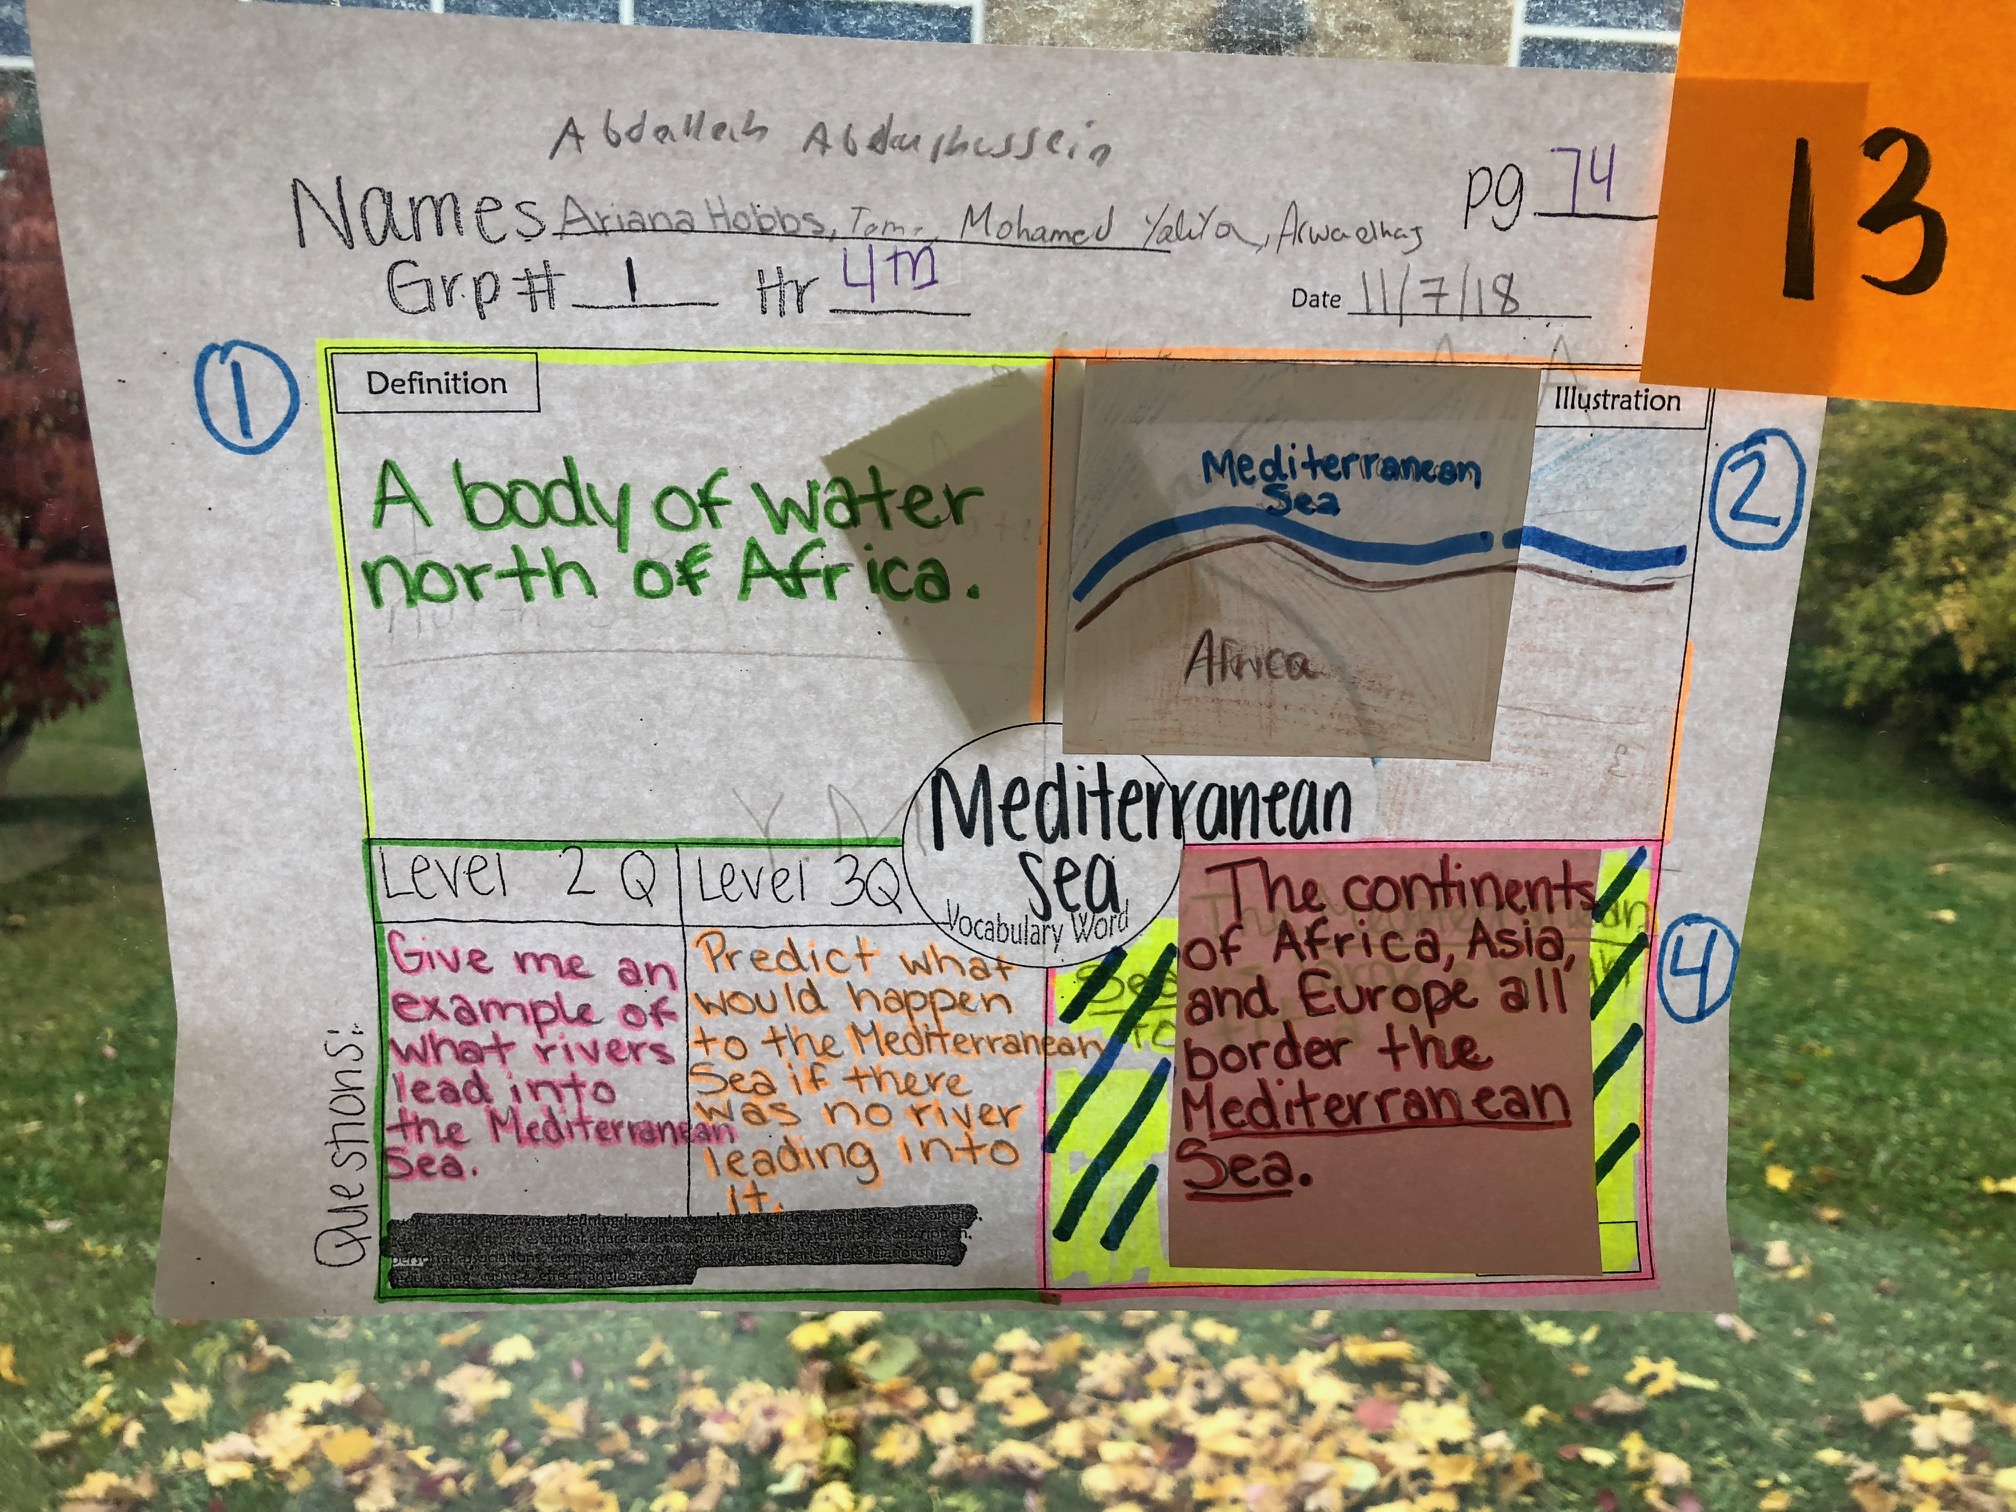 Abdallah
Names Ariana Hobbs, Mohamed Yahya, Arwa elhag
pg 74
13
Grp # 1 Hr 4th
Date 11/7/18
1
Definition
A body of water
north of Africa.
Illustration
2
Mediterranean
Sea
Africa
Mediterranean
Sea
Vocabulary Word
Questions:
Level 2 Q
Give me an
example of
what rivers
lead into
the Mediterranean
Sea.
Level 3Q
Predict what
would happen
to the Mediterranean
Sea if there
was no river
leading into
it.
4
The continents
of Africa, Asia,
and Europe all
border the
Mediterranean
Sea.